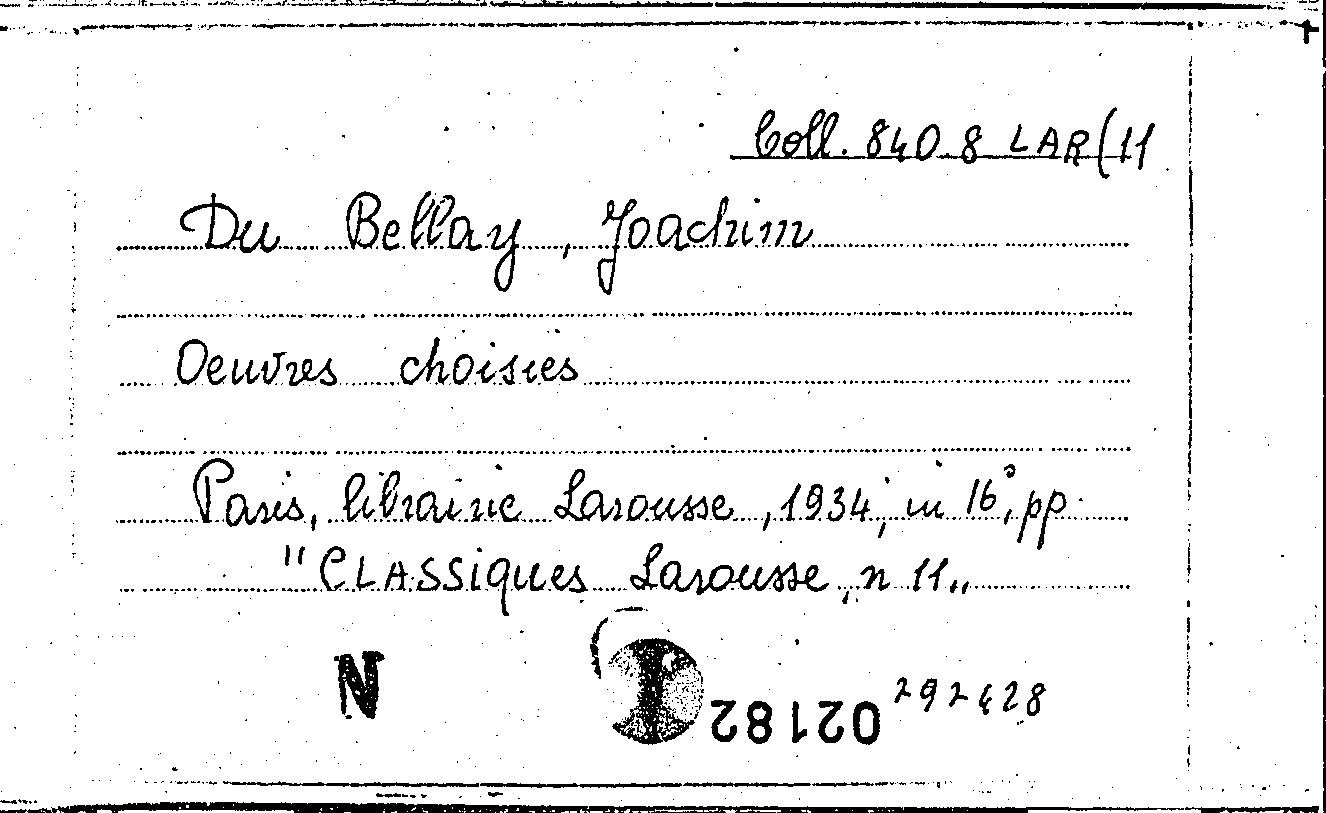 Coll. 840.8 LAR(11
Du Bellay, Joachim
Oeuvres choisies
Paris, librairie Larousse, 1934, in 16°, pp.
"CLASSiques Larousse, n 11„
N I 02182 292428